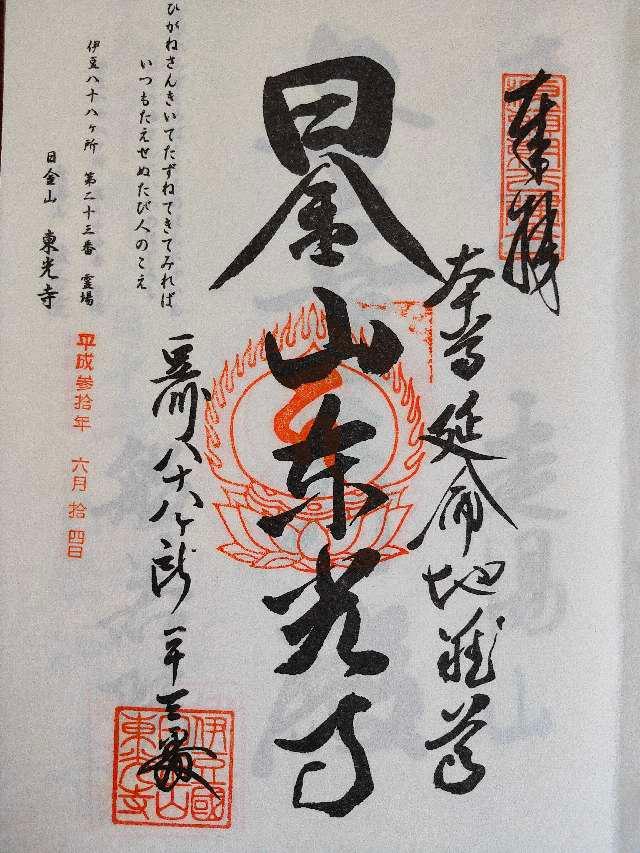 奉拝
本尊延命地蔵尊
日金山東光寺
豆州八十八ヶ所二十三番
伊豆國
日金山
東光寺
ひがねさんきいてたずねてきてみれば
いつもたえせぬたび人のこえ
伊豆八十八ヶ所 第二十三番 霊場
日金山 東光寺
平成参拾年 六月 拾四日